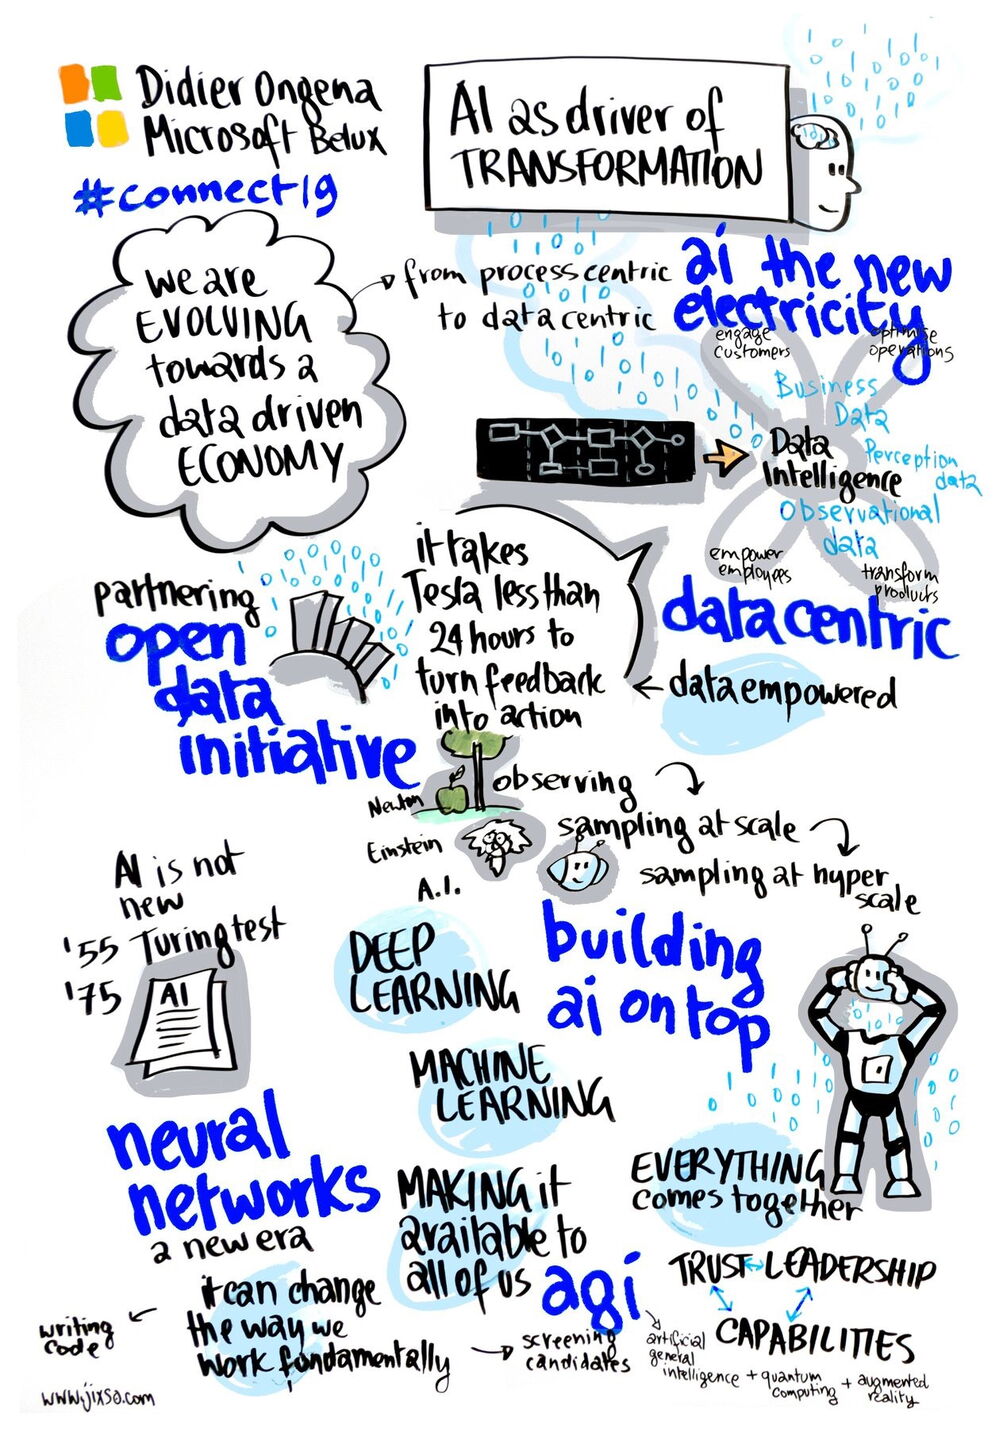 Didier Ongena
Microsoft Belux
#connect19
AI as driver of
TRANSFORMATION
we are
EVOLVING
towards a
data driven
ECONOMY
from process centric
to data centric
ai the new
electricity
engage
customers
optimise
operations
Business
Data
Data
Intelligence
Perception
data
Observational
data
empower
employees
transform
products
partnering
open
data
initiative
it takes
Tesla less than
24 hours to
turn feedback
into action
data centric
data empowered
Newton
observing
Einstein
sampling at scale
A.I.
sampling at hyper
scale
AI is not
new
'55 Turing test
'75
AI
DEEP
LEARNING
building
ai on top
MACHINE
LEARNING
neural
networks
a new era
MAKING it
available to
all of us
EVERYTHING
comes together
it can change
the way we
work fundamentally
writing
code
screening
candidates
agi
artificial
general
intelligence + quantum
computing + augmented
reality
TRUST LEADERSHIP
CAPABILITIES
www.jixso.com